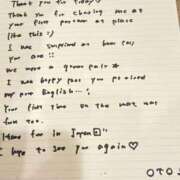 Thank you for today!
Thank you for choosing me as
your first person at place
(like this :)
I was surprised at how tall
you are!!
We were a good pair
I was happy that you praised
my poor English...
Your first time on the
fun too.
in Japan
I hope to see you again♡